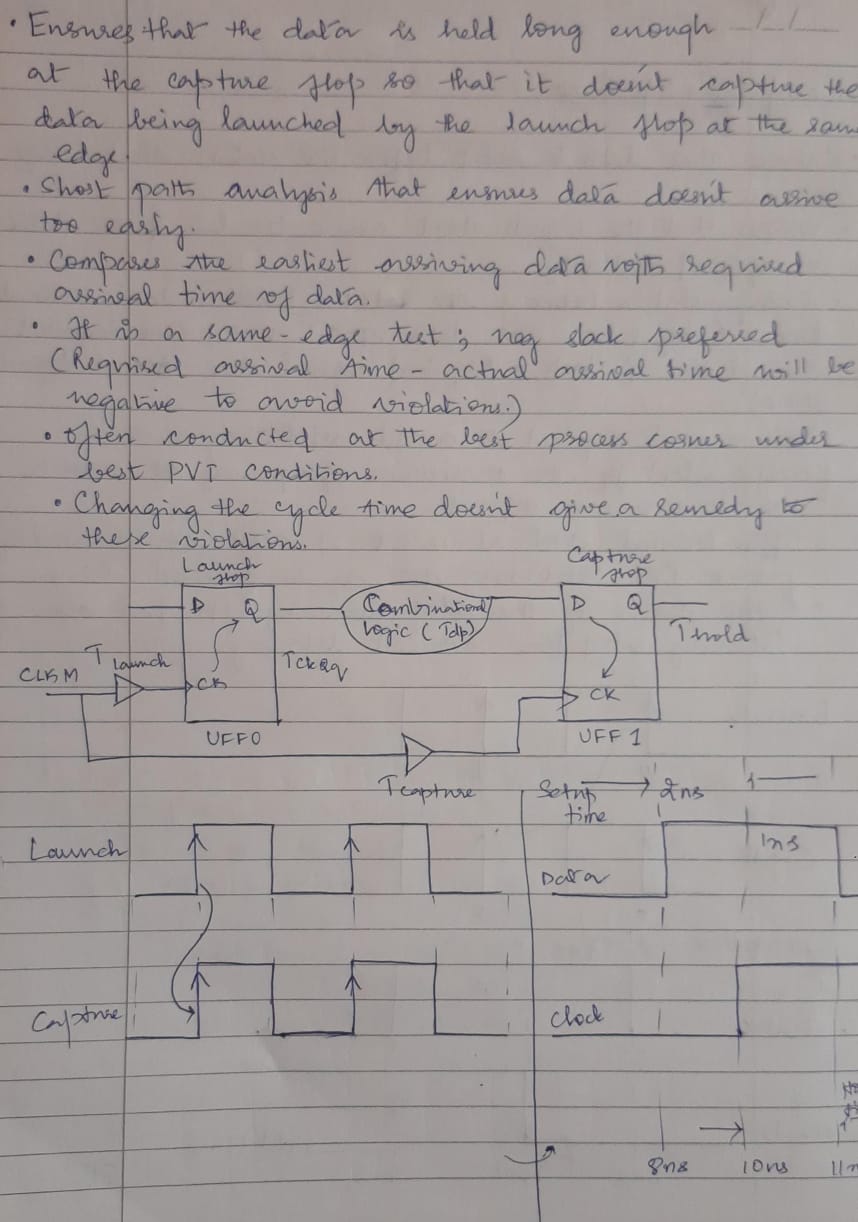 • Ensures that the data is held long enough
at the capture flop so that it doesn't capture the
data being launched by the launch flop at the same
edge.
• Short path analysis that ensures data doesn't arrive
too early.
• Compares the earliest arriving data with required
arrival time of data.
• It is a same-edge test; neg slack preferred
(Required arrival time - actual arrival time will be
negative to avoid violations.)
• Often conducted at the best process corner under
best PVT conditions.
• Changing the cycle time doesn't give a remedy to
these violations.
Launch
flop
Capture
flop
D Q
Combinational
logic (Tdp)
D Q
Thold
Tlaunch
TckQq
CLKM
CK
CK
UFF0
UFF1
Tcapture
Setup
time
2ns
1ns
Launch
Data
Capture
Clock
8ns 10ns 11n